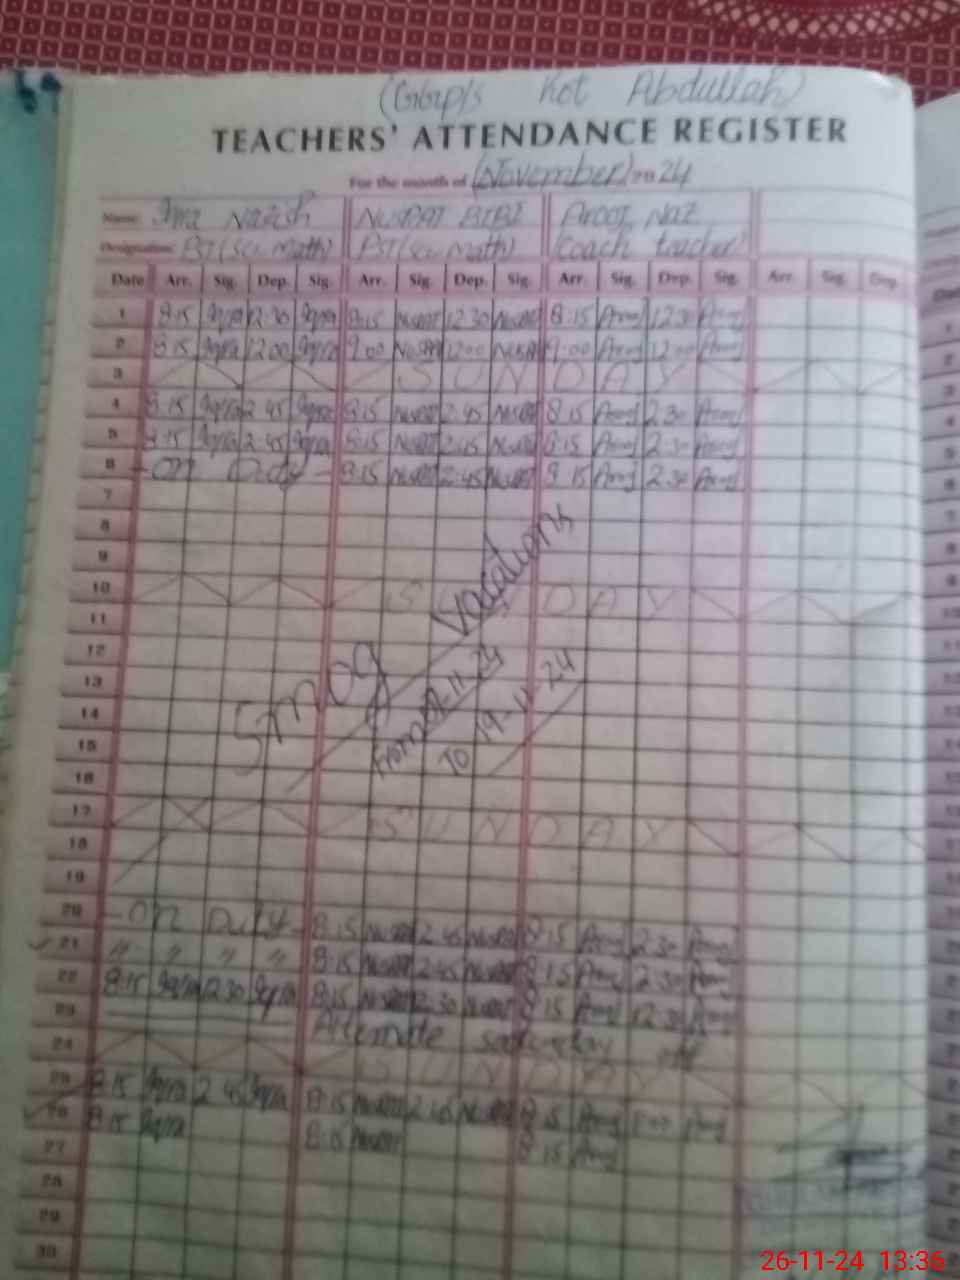 (GGP/S Kot Abdullah)
TEACHERS' ATTENDANCE REGISTER
For the month of (November) 20 24
Name: Nazish NUSRAT BIBI Arooj Naz
Designation: PST (Sci math) PST (Sci math) Coach teacher
Date Arr. Sig. Dep. Sig. Arr. Sig. Dep. Sig. Arr. Sig. Dep. Sig. Arr. Sig. Dep.
1 8:15 Iqra 12:30 Iqra 8:15 Nusrat 12:30 Nusrat 8:15 Arooj 12:30 Arooj
2 8:15 Iqra 12:00 Iqra 9:00 Nusrat 12:00 Nusrat 9:00 Arooj 12:00 Arooj
3 SUNDAY
4 8:15 Iqra 2:45 Iqra 8:15 Nusrat 2:45 Nusrat 8:15 Arooj 2:30 Arooj
5 8:15 Iqra 2:45 Iqra 8:15 Nusrat 2:45 Nusrat 8:15 Arooj 2:30 Arooj
6 - On Duty - 8:15 Nusrat 2:45 Nusrat 8:15 Arooj 2:30 Arooj
7
8
9
10 SUNDAY
11
12
13
14
15
16
Smog Vacations
From 07-11-24
To 19-11-24
17 SUNDAY
18
19
20 - On Duty - 8:15 Nusrat 2:45 Nusrat 8:15 Arooj 2:30 Arooj
21 " " " " 8:15 Nusrat 2:45 Nusrat 8:15 Arooj 2:30 Arooj
22 8:15 Iqra 12:30 Iqra 8:15 Nusrat 12:30 Nusrat 8:15 Arooj 12:30 Arooj
23 Alternate saturday off
24 SUNDAY
25 8:15 Iqra 2:45 Iqra 8:15 Nusrat 2:45 Nusrat 8:15 Arooj Arooj
26 8:15 Iqra 8:15 Nusrat 8:15 Arooj
27
28
29
30
26-11-24 13:36